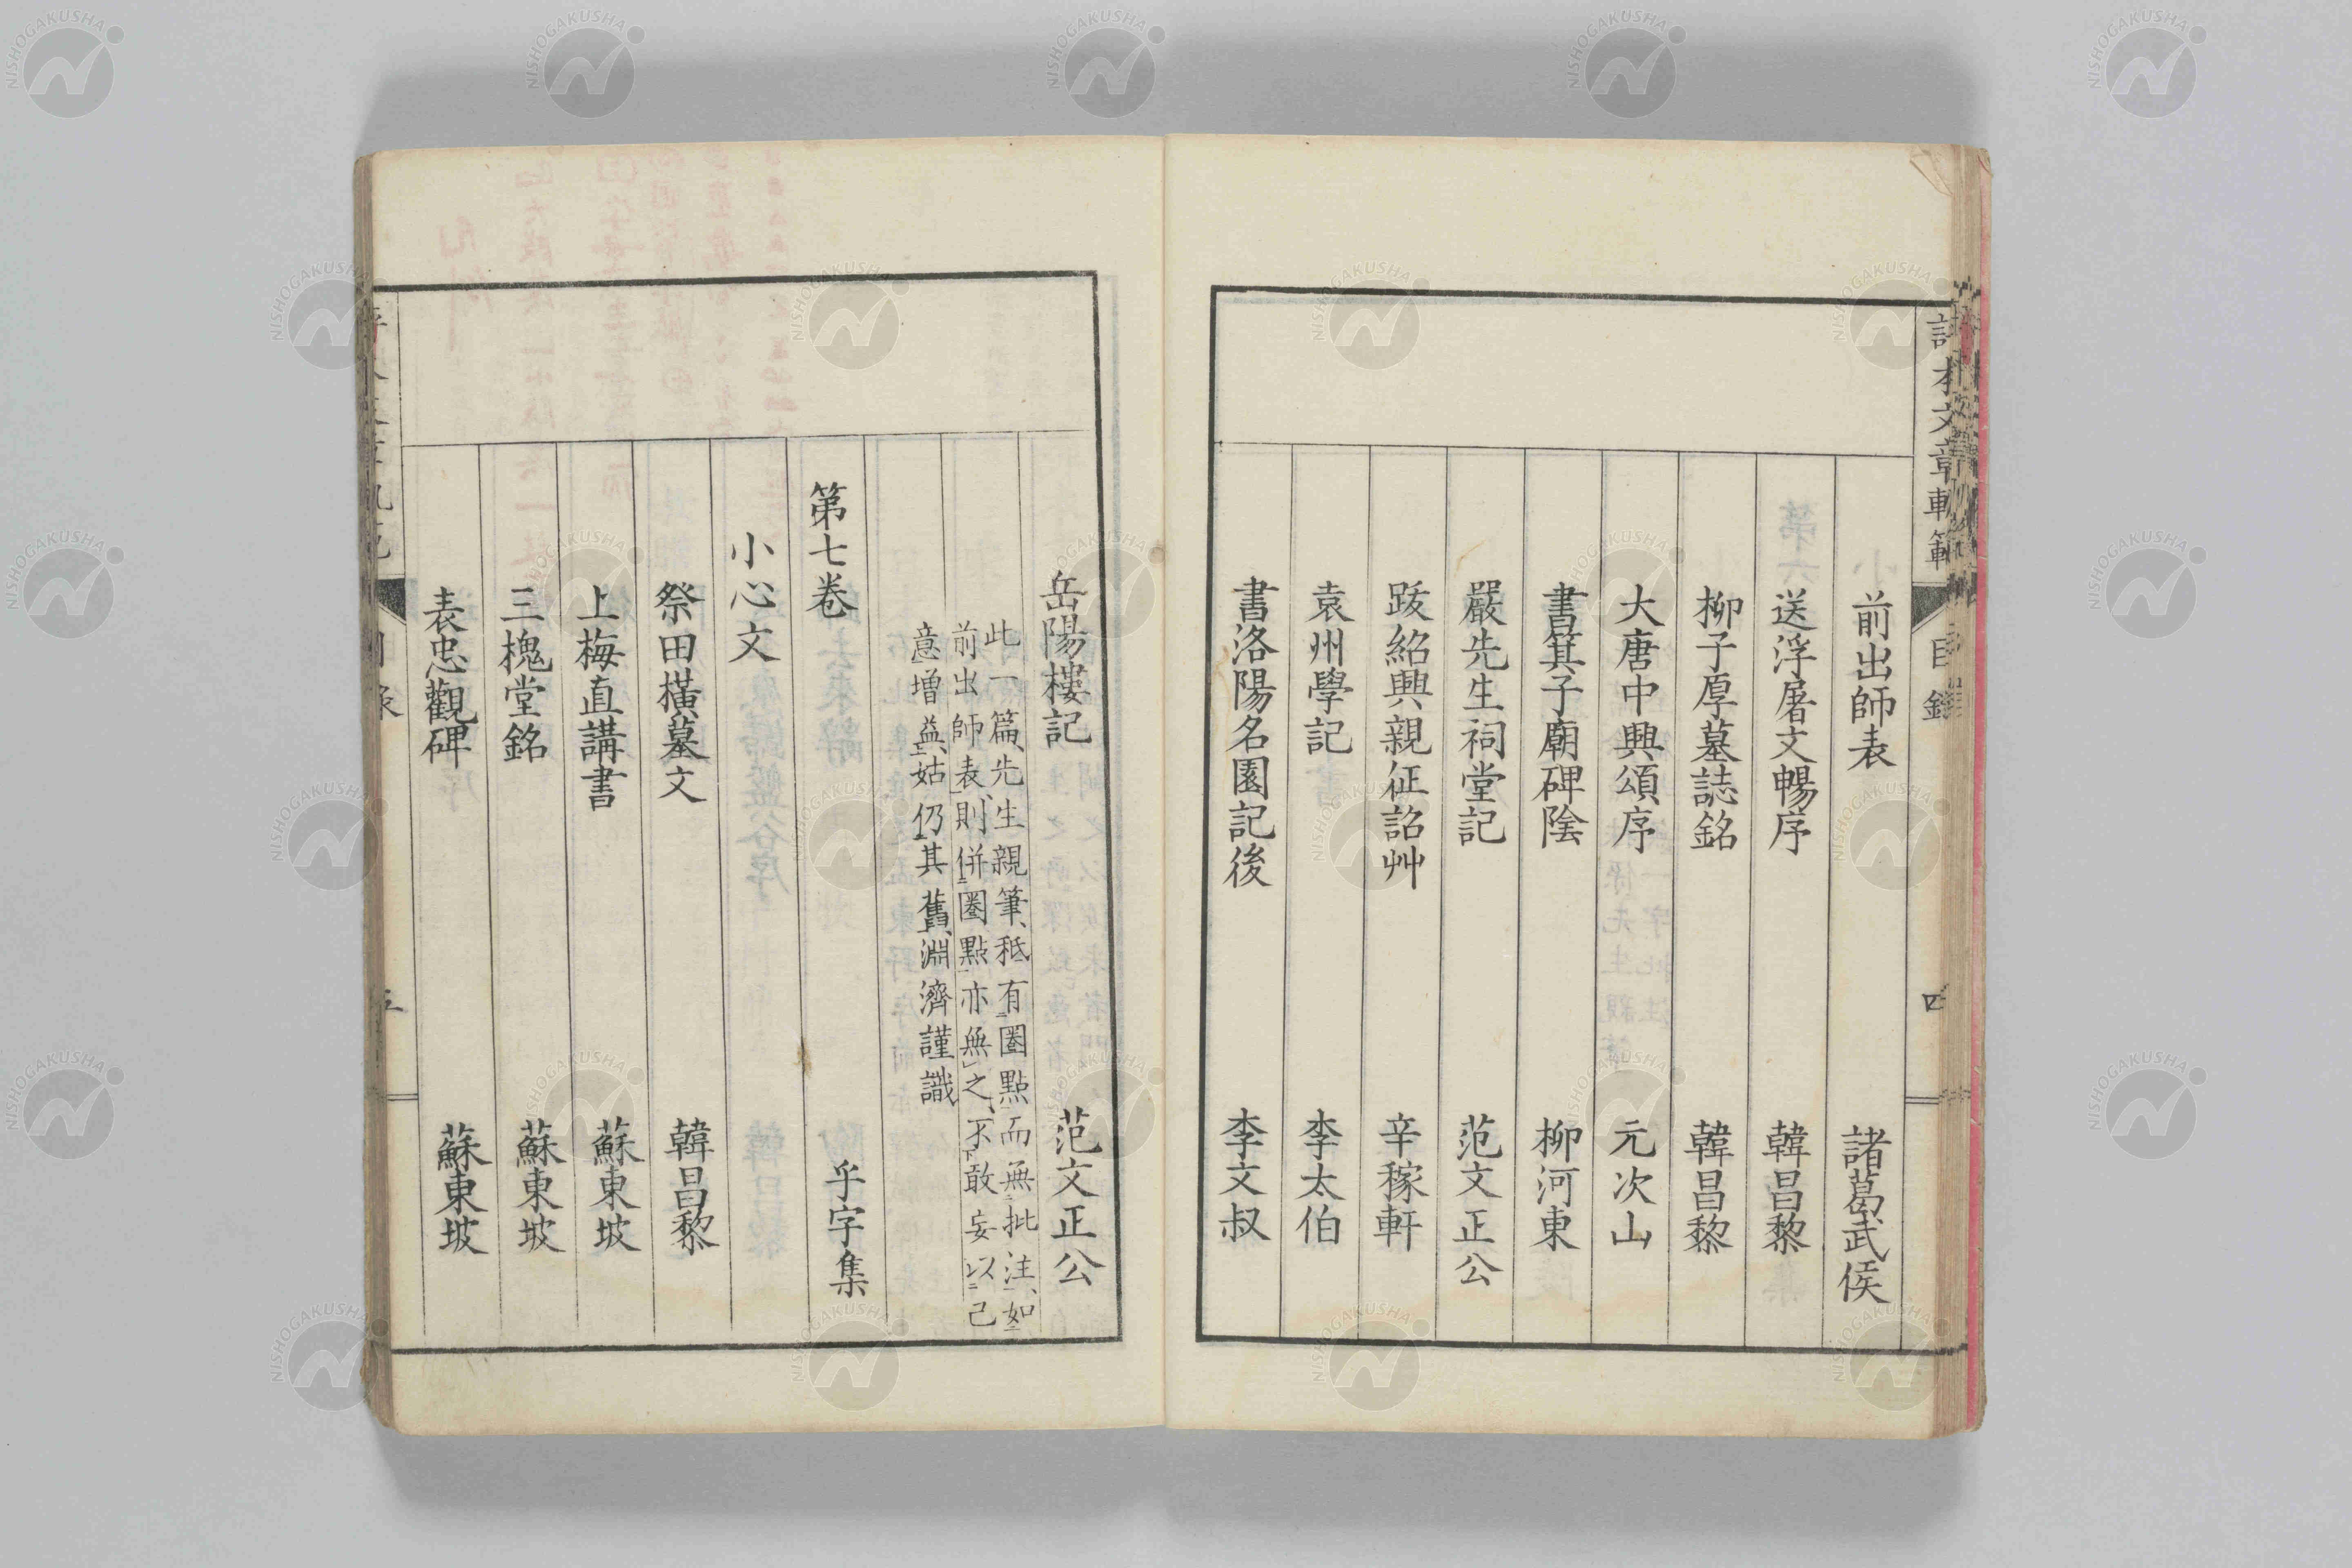 文章軌範
目錄
四
前出師表 諸葛武侯
送浮屠文暢序 韓昌黎
柳子厚墓誌銘 韓昌黎
大唐中興頌序 元次山
書箕子廟碑陰 柳河東
嚴先生祠堂記 范文正公
跋紹興親征詔艸 辛稼軒
袁州學記 李太伯
書洛陽名園記後 李文叔
岳陽樓記 范文正公
此一篇先生親筆秪有圈點而無批注如
前出師表則併圈點亦無之不敢妄以己
意增益姑仍其舊淵濟謹識
第七卷 乎字集
小心文
祭田橫墓文 韓昌黎
上梅直講書 蘇東坡
三槐堂銘 蘇東坡
表忠觀碑 蘇東坡
NISHOGAKUSHA